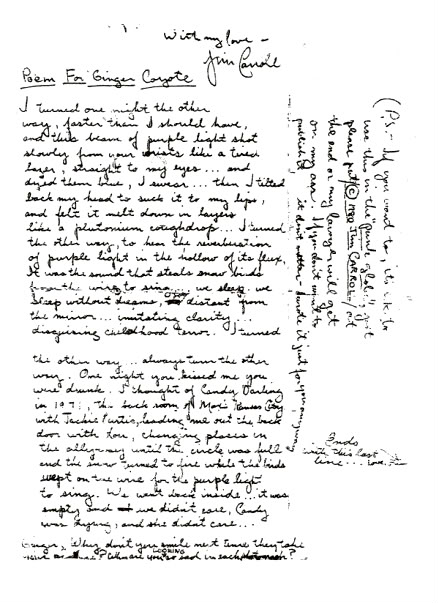 With my love –
Jim Carroll
Poem For Ginger Coyote
I turned one night the other
way, faster than I should have,
and this beam of purple light shot
slowly from your wrists like a tired
lazer, straight to my eyes... and
dyed them blue, I swear... then I tilted
back my head to suck it to my lips,
and felt it melt down in layers
like a plutonium coughdrop... I turned
the other way, to hear the reverberation
of purple light in the hollow of its flux,
It was the sound that steals snow birds
from the wire to sing... we sleep, we
sleep without dreams, distant from
the mirror... imitating clarity...
disguising childhood terror. I turned
the other way... always turn the other
way. One night you kissed me you
were drunk. I thought of Candy Darling
in 1971, the back room of Max's Kansas City
with Jackie Curtis, leading me out the back
door with Lou, changing places in
the alleyway until the circle was full
and the snow turned to fire while the birds
wept on the wire for the purple light
to sing. We went back inside... it was
empty and we didn't care, Candy
was dying, and she didn't care...
Ginger, Why don't you smile next time they take
your ? Why are you so sad in each
LOOKING
(P.S. – If you want to, it's ok to
use this in the "punk globe", just
please put © 1980 JIM CARROLL at
the end or my lawyers will get
on my ass. If you don't want to
publish it don't matter – I wrote it just for you anyway
Ends
with this last
line...